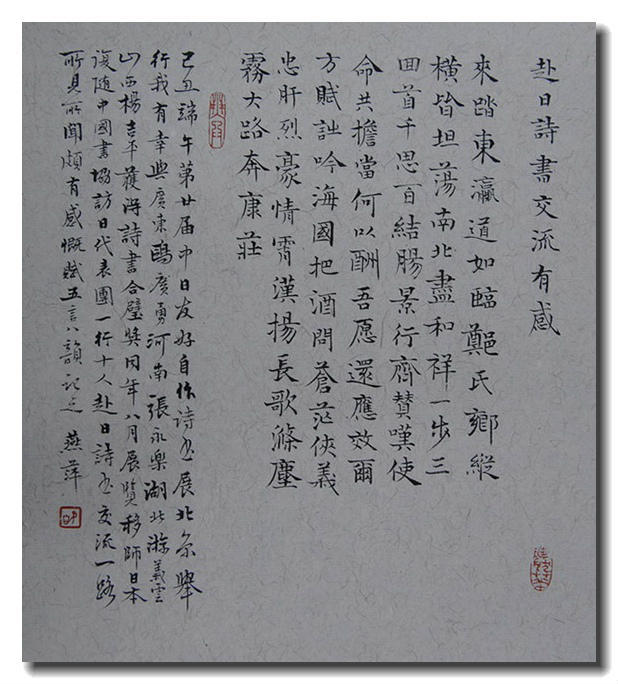 赴日詩書交流有感
來踏東瀛道如臨鄭氏鄉縱
橫皆坦蕩南北盡和祥一步三
回首千思百結腸景行齊贊嘆使
命共擔當何以酬吾愿還應效爾
方賦詘吟海國把酒問蒼茫俠義
忠肝烈豪情霄漢揚長歌滌塵
霧大路奔康莊
己丑端午第廿届中日友好自作詩书展北京舉
行我有幸與廣東鷗廣勇河南張永樂湖北游義雲
山西楊吉平獲得詩書合璧獎同年八月展覽移師日本
復隨中國書協訪日代表團一行十人赴日詩书交流一路
所見所聞頗有感慨賦五言八韻記之 燕萍